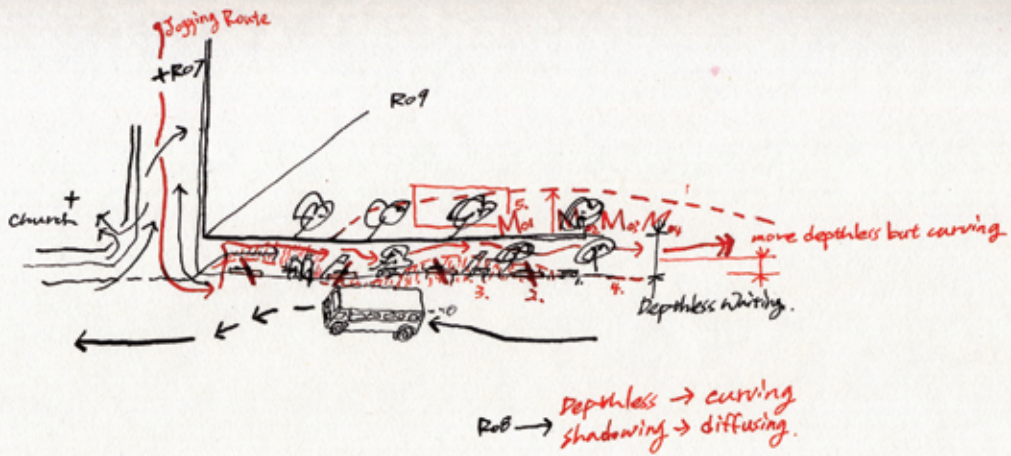 Jogging Route
+R07
R09
+
church
5.
M01
M03
M04
more depthless but curving
3.
2.
4.
Depthless waiting.
R08 → Depthless → curving
shadowing → diffusing.